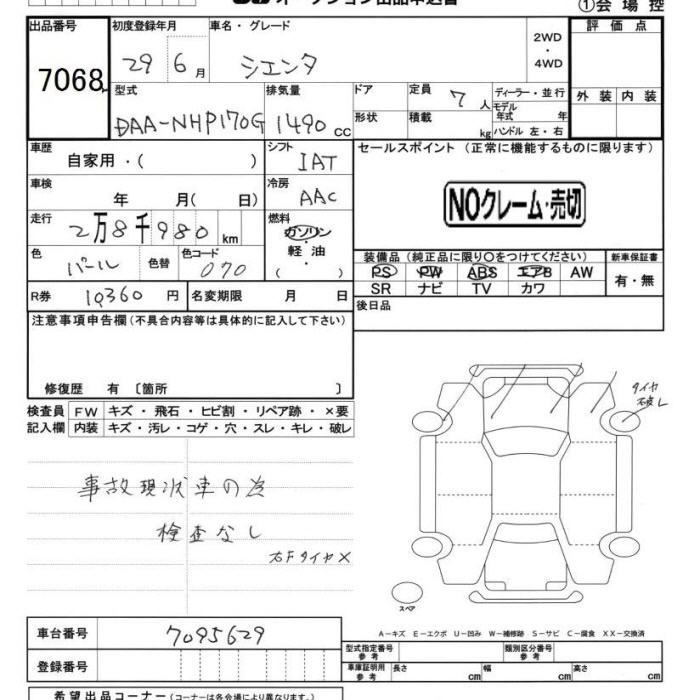 オークション出品申込書 ①会場控
出品番号 初度登録年月 車名・グレード 2WD・4WD 評価点
7068 29 6月 シエンタ
型式 排気量 ドア 定員 7人 ディーラー・並行 外装 内装
DAA-NHP170G 1490cc 形状 積載 kg モデル年式 年
ハンドル 左・右
車歴 自家用・( ) シフト IAT セールスポイント (正常に機能するものに限ります)
車検 年 月( 日) 冷房 AAC NOクレーム・売切
走行 2万8千980km 燃料 ガソリン・軽油・( )
色 パール 色替 色コード 070
装備品(純正品に限り○をつけてください) 新車保証書
PS PW ABS エアB AW 有・無
SR ナビ TV カワ
R券 10360円 名変期限 月 日 後日品
注意事項申告欄(不具合内容等は具体的に記入して下さい)
修復歴 有 〔箇所 〕
検査員記入欄 FW キズ・飛石・ヒビ割・リペア跡・×要
内装 キズ・汚レ・コゲ・穴・スレ・キレ・破レ
タイヤ
破レ
事故現状車の為
検査なし
右FタイヤX
スペア
A-キズ E-エクボ U-凹み W-補修跡 S-サビ C-腐食 XX-交換済
車台番号 7095629
型式指定番号参考 類別区分番号参考
登録番号 車庫証明用参考 長さ cm 幅 cm 高さ cm
希望出品コーナー(コーナーは各会場により異なります。)